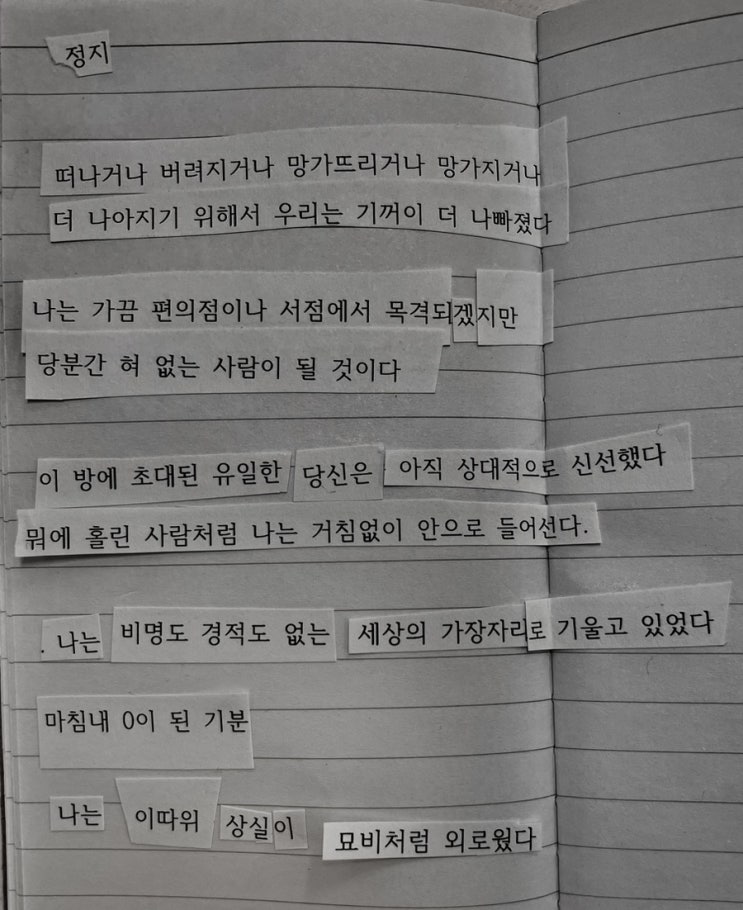 정지
떠나거나 버려지거나 망가뜨리거나 망가지거나
더 나아지기 위해서 우리는 기꺼이 더 나빠졌다
나는 가끔 편의점이나 서점에서 목격되겠지만
당분간 혀 없는 사람이 될 것이다
이 방에 초대된 유일한 당신은 아직 상대적으로 신선했다
뭐에 홀린 사람처럼 나는 거침없이 안으로 들어선다.
. 나는 비명도 경적도 없는 세상의 가장자리로 기울고 있었다
마침내 0이 된 기분
나는 이따위 상실이 묘비처럼 외로웠다